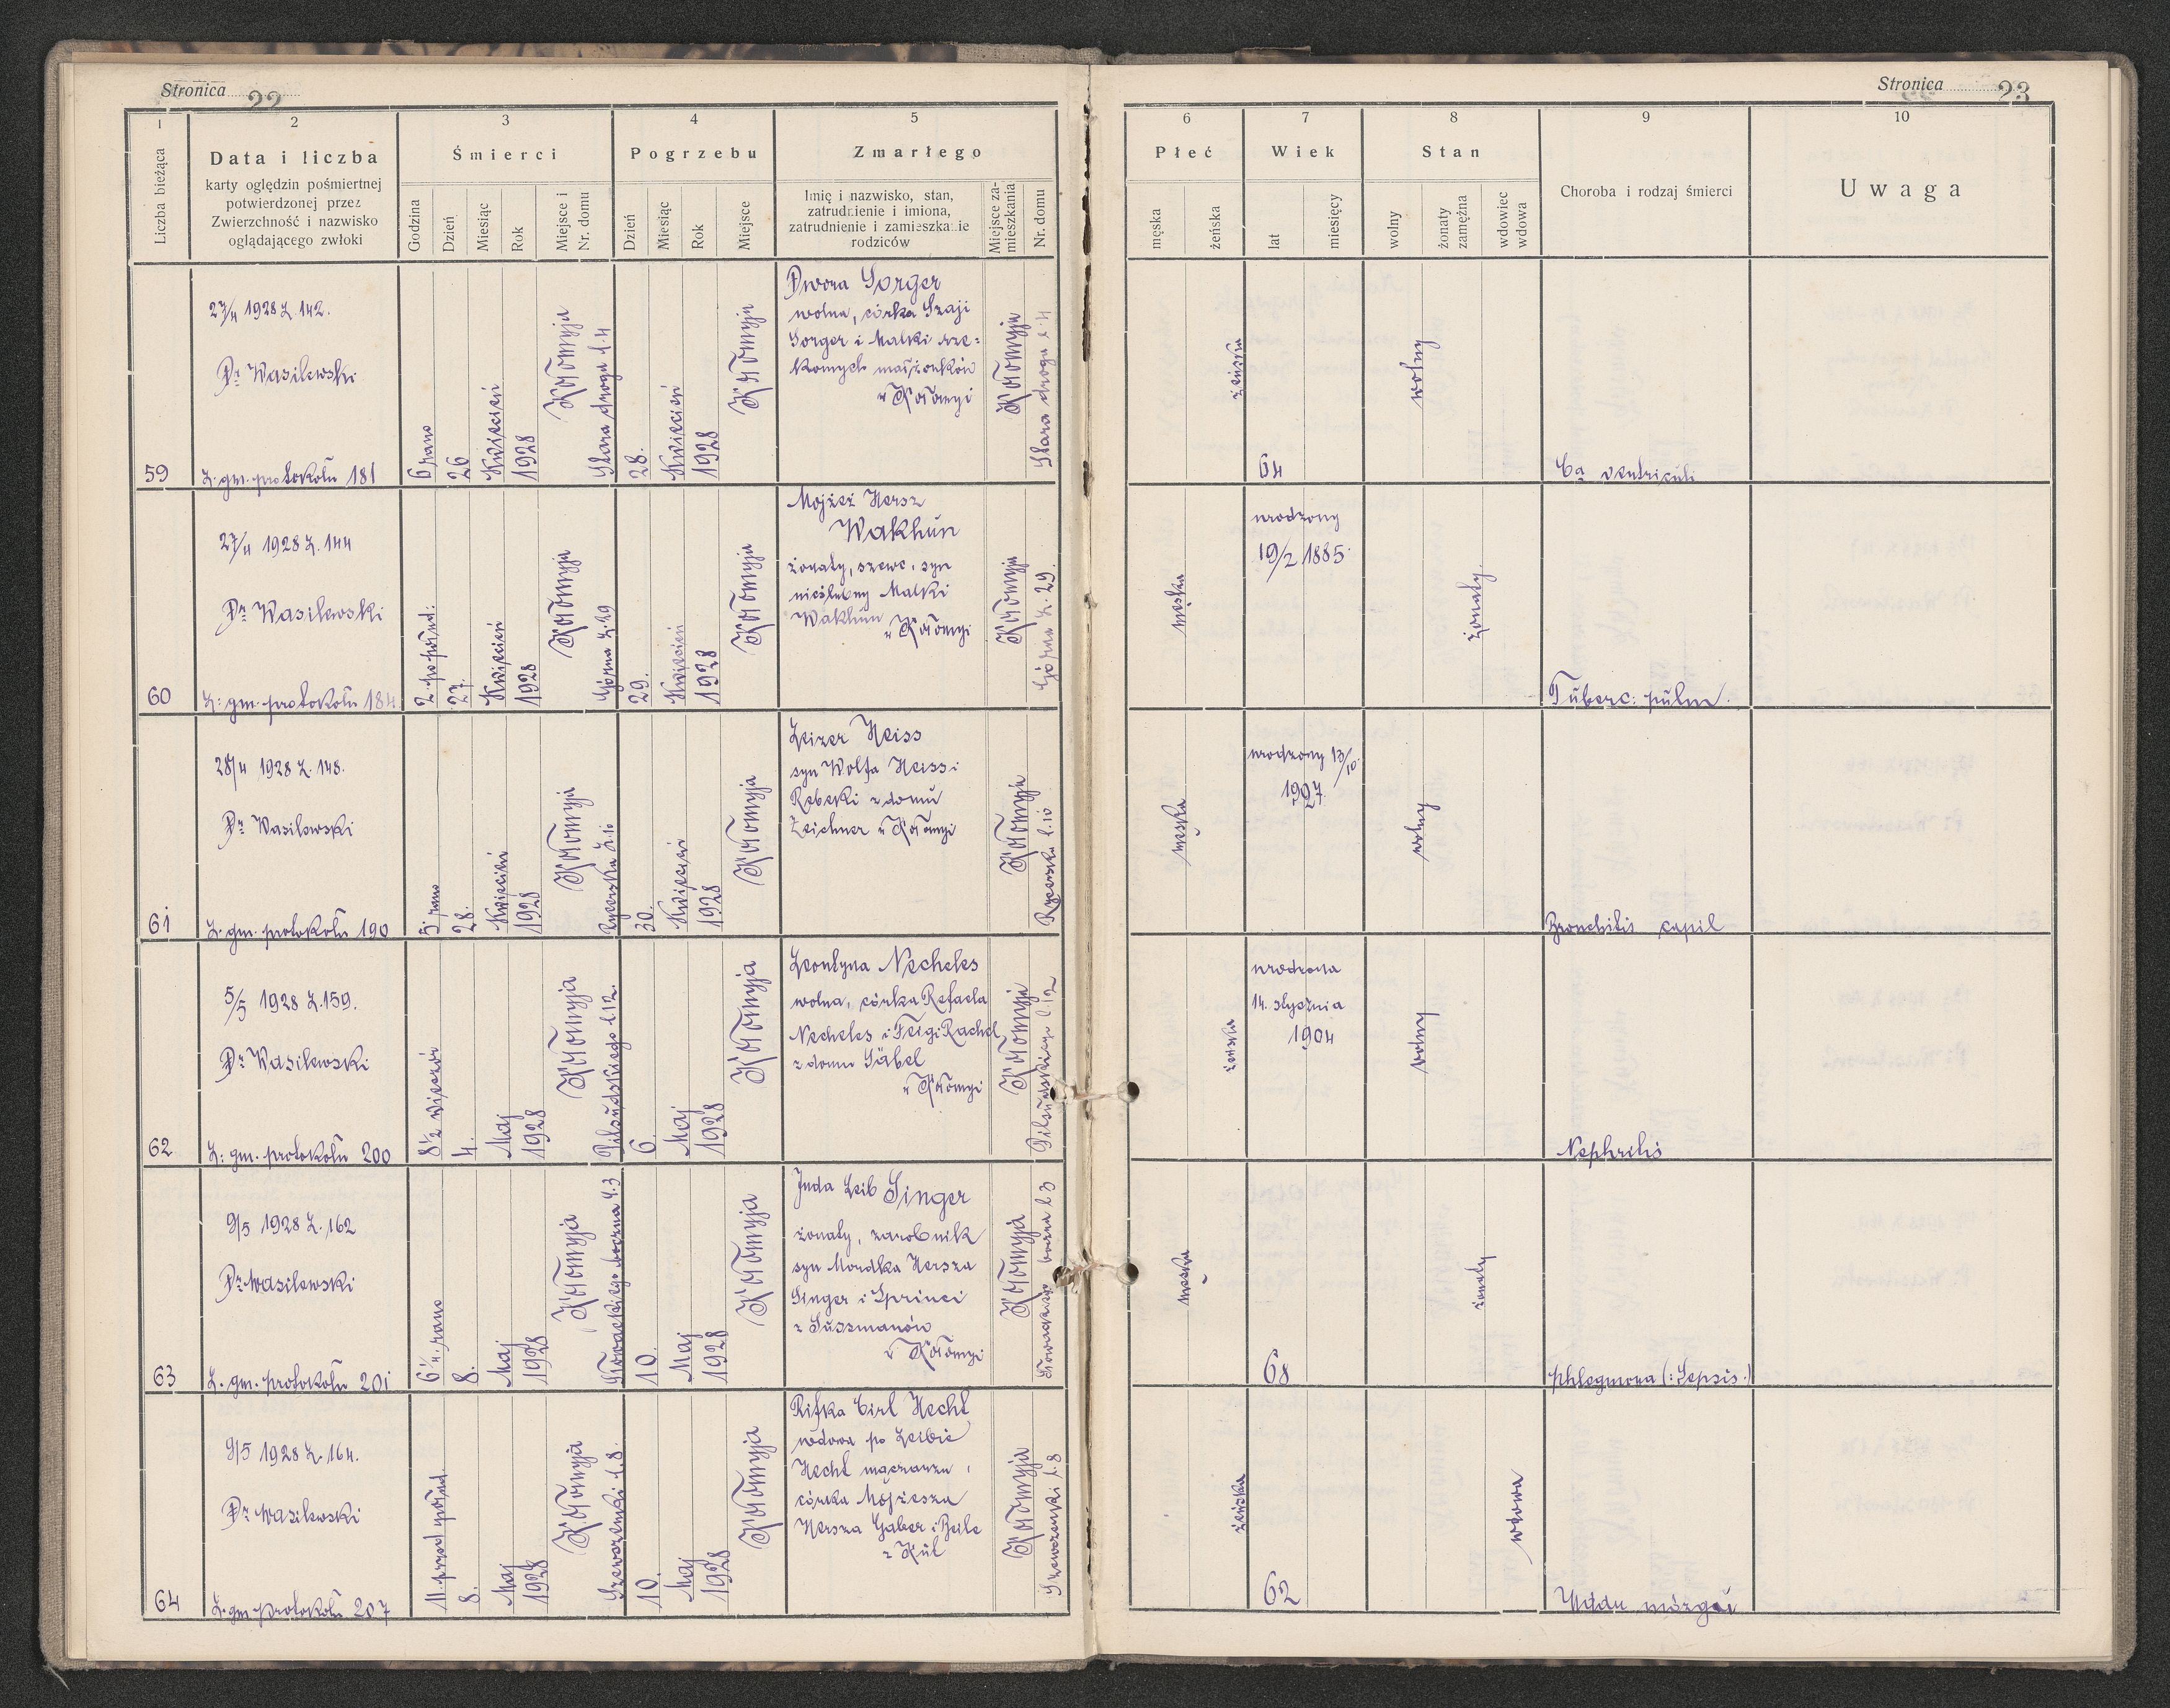 Stronica 22
1 2 3 4 5
Liczba bieżąca
Data i liczba
karty oględzin pośmiertnej
potwierdzonej przez
Zwierzchność i nazwisko
oglądającego zwłoki
Śmierci
Godzina
Dzień
Miesiąc
Rok
Miejsce i
Nr. domu
Pogrzebu
Dzień
Miesiąc
Rok
Miejsce
Zmarłego
Imię i nazwisko, stan,
zatrudnienie i imiona,
zatrudnienie i zamieszkanie
rodziców
Miejsce za-
mieszkania
Nr. domu
Stronica 23
6 7 8 9 10
Płeć
męska
żeńska
Wiek
lat
miesięcy
Stan
wolny
żonaty
zamężna
wdowiec
wdowa
Choroba i rodzaj śmierci
Uwaga
59
27/4 1928 L. 142.
Dr Wasilewski
L. gm. protokołu 181
6 rano
26
Kwiecień
1928
Kołomyja
Stara droga l. 4
28.
Kwiecień
1928
Kołomyja
Dwora Sorger
wolna, córka Szaji
Sorger i Malki rze-
komych małżonków
w Kołomyi
Kołomyja
Stara droga l. 4
żeńska
64
wolny
Ca ventriculi
60
27/4 1928 L. 144
Dr Wasilewski
L: gm. protokołu 184
2. po połud:
27.
Kwiecień
1928
Kołomyja
Górna L. 29
29.
Kwiecień
1928
Kołomyja
Mojżeż Hersz
Wakhun
żonaty, szewc, syn
nieślubny Malki
Wakhun w Kołomyi
Kołomyja
Górna L. 29.
męska
urodzony
19/2 1885.
żonaty.
Tuberc: pulm.
61
28/4 1928 L. 148.
Dr Wasilewski
L. gm. protokołu 190
5 rano
28.
Kwiecień
1928
Kołomyja
Rycerska L. 10
30.
Kwiecień
1928
Kołomyja
Leizer Heiss
syn Wolfa Heiss i
Rebeki z domu
Zeichner w Kołomyi
Kołomyja
Rycerska l. 10
męska
urodzony 13/10.
1927
wolny
Bronchitis capil
62
5/5 1928 L. 159.
Dr Wasilewski
L: gm. protokołu 200
8 1/2 wieczór
4.
Maj
1928
Kołomyja
Piłsudskiego l 12.
6.
Maj
1928
Kołomyja
Leontyna Necheles
wolna, córka Rafaela
Necheles i Feigi Rachel
z domu Säbel
w Kołomyi
Kołomyja
Piłsudskiego l 12
żeńska
urodzona
14. stycznia
1904
wolny
Nephritis
63
9/5 1928 L. 162
Dr Wasilewski
L. gm. protokołu 201
6 1/4. rano
8.
Maj
1928
Kołomyja
Słowackiego boczna l. 3
10.
Maj
1928
Kołomyja
Juda Leib Singer
żonaty, zarobnik
syn Mordka Hersza
Singer i Sprinci
z Sussmanów
w Kołomyi
Kołomyja
Słowackiego boczna l 3
męska
68
żonaty
phlegmona (: Sepsis.)
64
9/5 1928 L. 164.
Dr Wasilewski
L. gm protokołu 207
11. przed połud.
8.
Maj
1928
Kołomyja
Szewczenki l. 8.
10.
Maj
1928
Kołomyja
Rifka Cirl Hecht
wdowa po Leibie
Hecht mączarzu,
córka Mojżesza
Hersza Gaber i Beile
Kołomyja
Szewczenki l. 8
żeńska
62
wdowa
mózgu